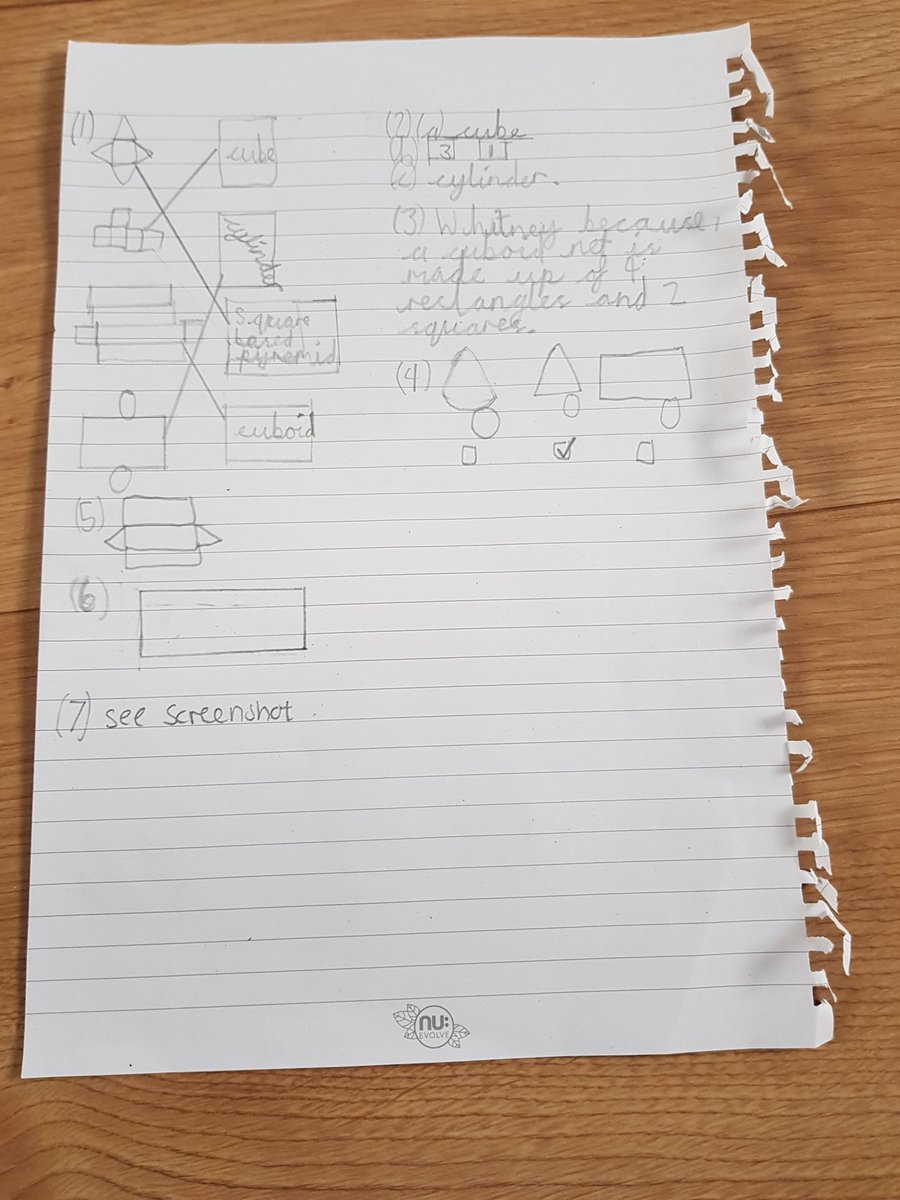 (1)
cube
cylinder
square
based
pyramid
cuboid
(2) (a) cube
(b) 3 1
(c) cylinder.
(3) Whitney because,
a cuboid net is
made up of 4
rectangles and 2
squares.
(4)
(5)
(6)
(7) see screenshot.
nu:
EVOLVE